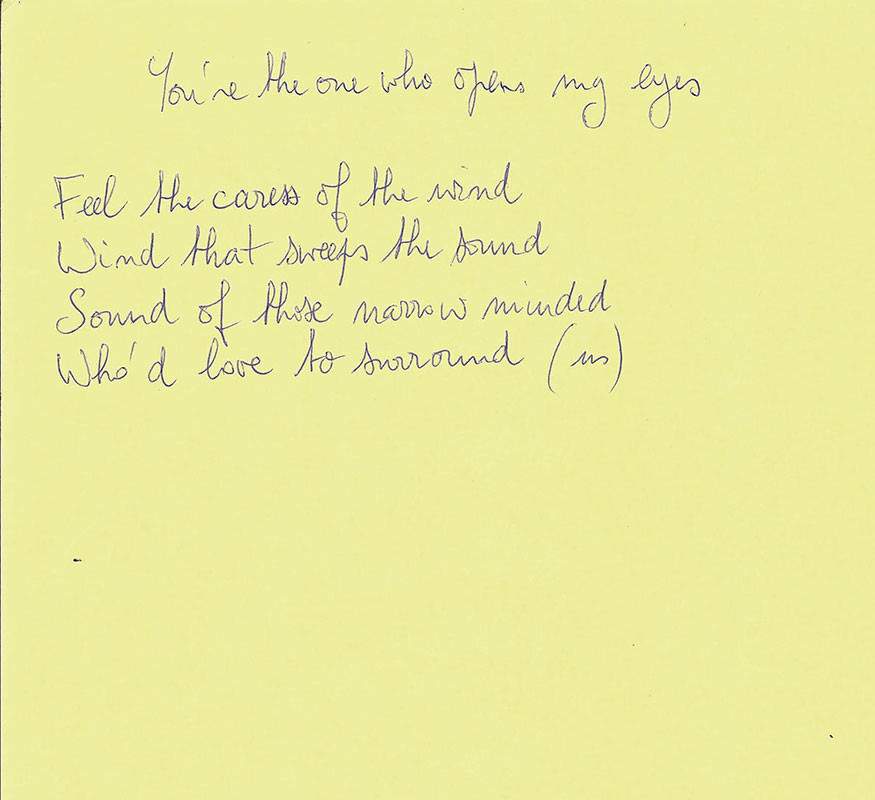 You're the one who opens my eyes
Feel the caress of the wind
Wind that sweeps the sound
Sound of those narrow minded
Who'd love to surround (us)